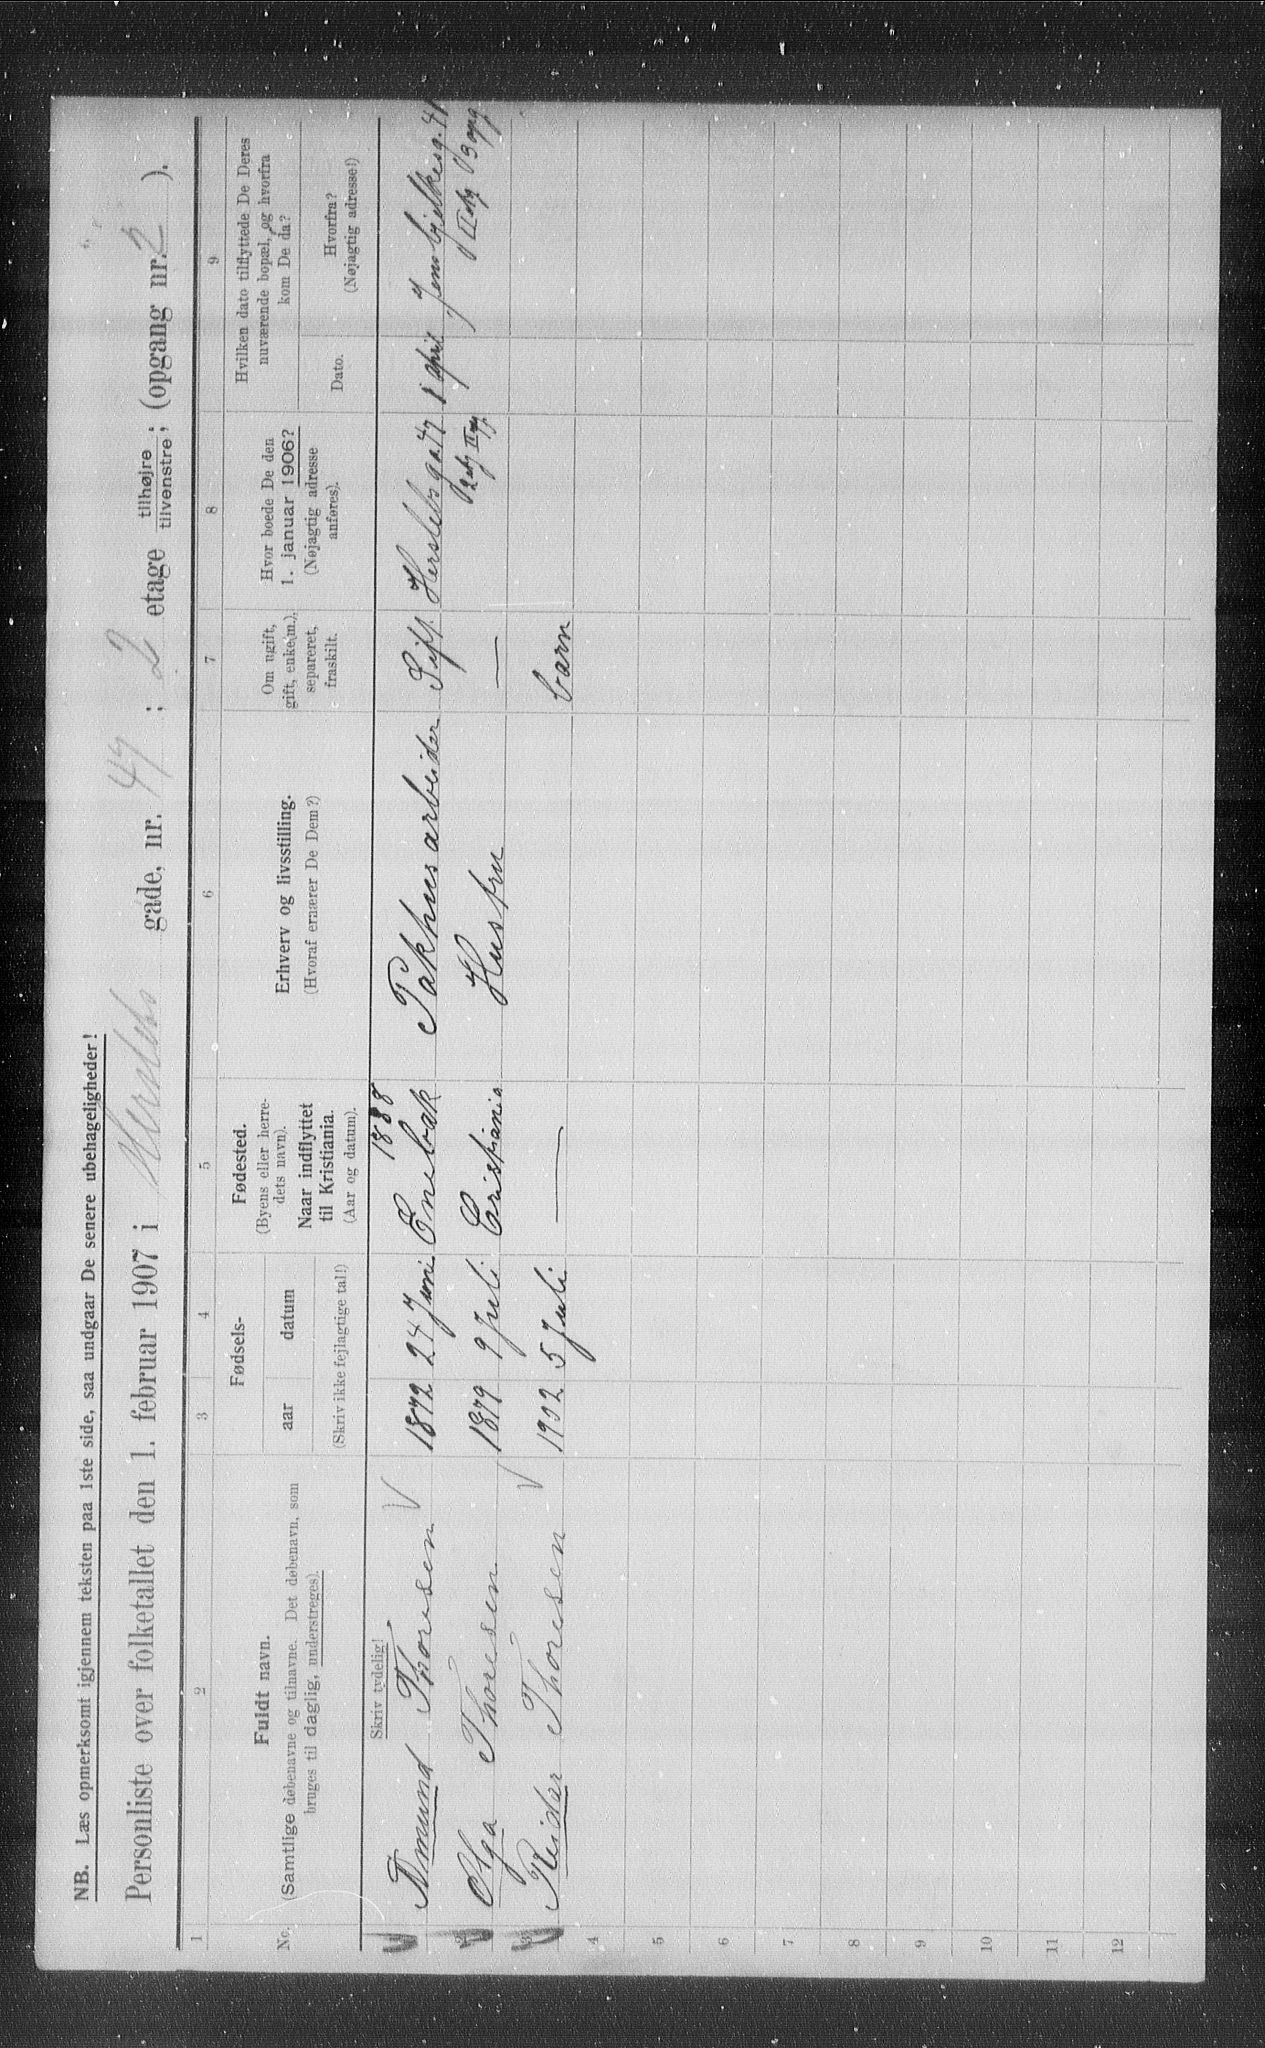 NB. Læs opmerksomt igjennem teksten paa 1ste side, saa undgaar De senere ubehageligheder!
Personliste over folketallet den 1. februar 1907 i Herslebs gade, nr. 47 ; 2 etage tilhøjre / tilvenstre ; (opgang nr. 2 ).
1 2 3 4 5 6 7 8 9
No.
Fuldt navn.
(Samtlige døbenavne og tilnavne. Det døbenavn, som
bruges til daglig, understreges).
Fødsels-
aar datum
(Skriv ikke fejlagtige tal!)
Fødested.
(Byens eller herre-
dets navn).
Naar indflyttet
til Kristiania.
(Aar og datum).
Erhverv og livsstilling.
(Hvoraf ernærer De Dem?)
Om ugift,
gift, enke(m.),
separeret,
fraskilt.
Hvor boede De den
1. januar 1906?
(Nøjagtig adresse
anføres).
Hvilken dato tilflyttede De Deres
nuværende bopæl, og hvorfra
kom De da?
Dato.
Hvorfra?
(Nøjagtig adresse!)
Skriv tydelig!
1888
Amund Thoresen 1872 24 Juni Enebak Pakhusarbeider Gift Herslebsga 47 1 april Jens bjelkesg. 41
2 Olga Thoresen 1879 9 Juli Cristiania Hustru —
3 Reidar Thoresen 1902 5 Juli — barn
4
5
6
7
8
9
10
11
12